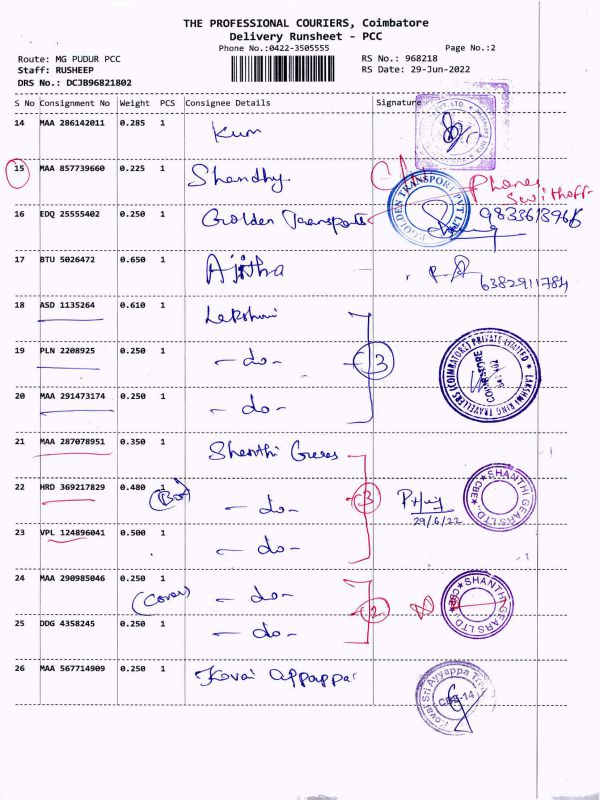 THE PROFESSIONAL COURIERS, Coimbatore
Delivery Runsheet - PCC
Phone No.:0422-3505555
Page No.:2
Route: MG PUDUR PCC
RS No.: 968218
Staff: RUSHEEP
RS Date: 29-Jun-2022
DRS No.: DCJB96821802
S No Consignment No Weight PCS Consignee Details Signature
14 MAA 286142011 0.285 1
PVT. LTD.
15 MAA 857739660 0.225 1
Phones
Swithoff
16 EDQ 25555402 0.250 1 Golden Transports
GOLDEN TRANSPORT PVT LTD
17 BTU 5026472 0.650 1 Ajitha
6382911784
18 ASD 1135264 0.610 1 Lakshmi
19 PLN 2208925 0.250 1 - do - 3
LAKSHMI RING TRAVELLERS (COIMBATORE) PRIVATE LIMITED
COIMBATORE
641 402
20 MAA 291473174 0.250 1 - do -
21 MAA 287078951 0.350 1 Shanthi Gears
22 HRD 369217829 0.480 1 (Box) - do - 3
29/6/22
SHANTHI GEARS LTD., CBE
23 VPL 124896041 0.500 1 - do -
24 MAA 290985046 0.250 1 (Cover) - do - 2
SHANTHI GEARS LTD., CBE
25 DDG 4358245 0.250 1 - do -
26 MAA 567714909 0.250 1 Kovai Appappa
Kovai Sri Ayyappa
CBE-14